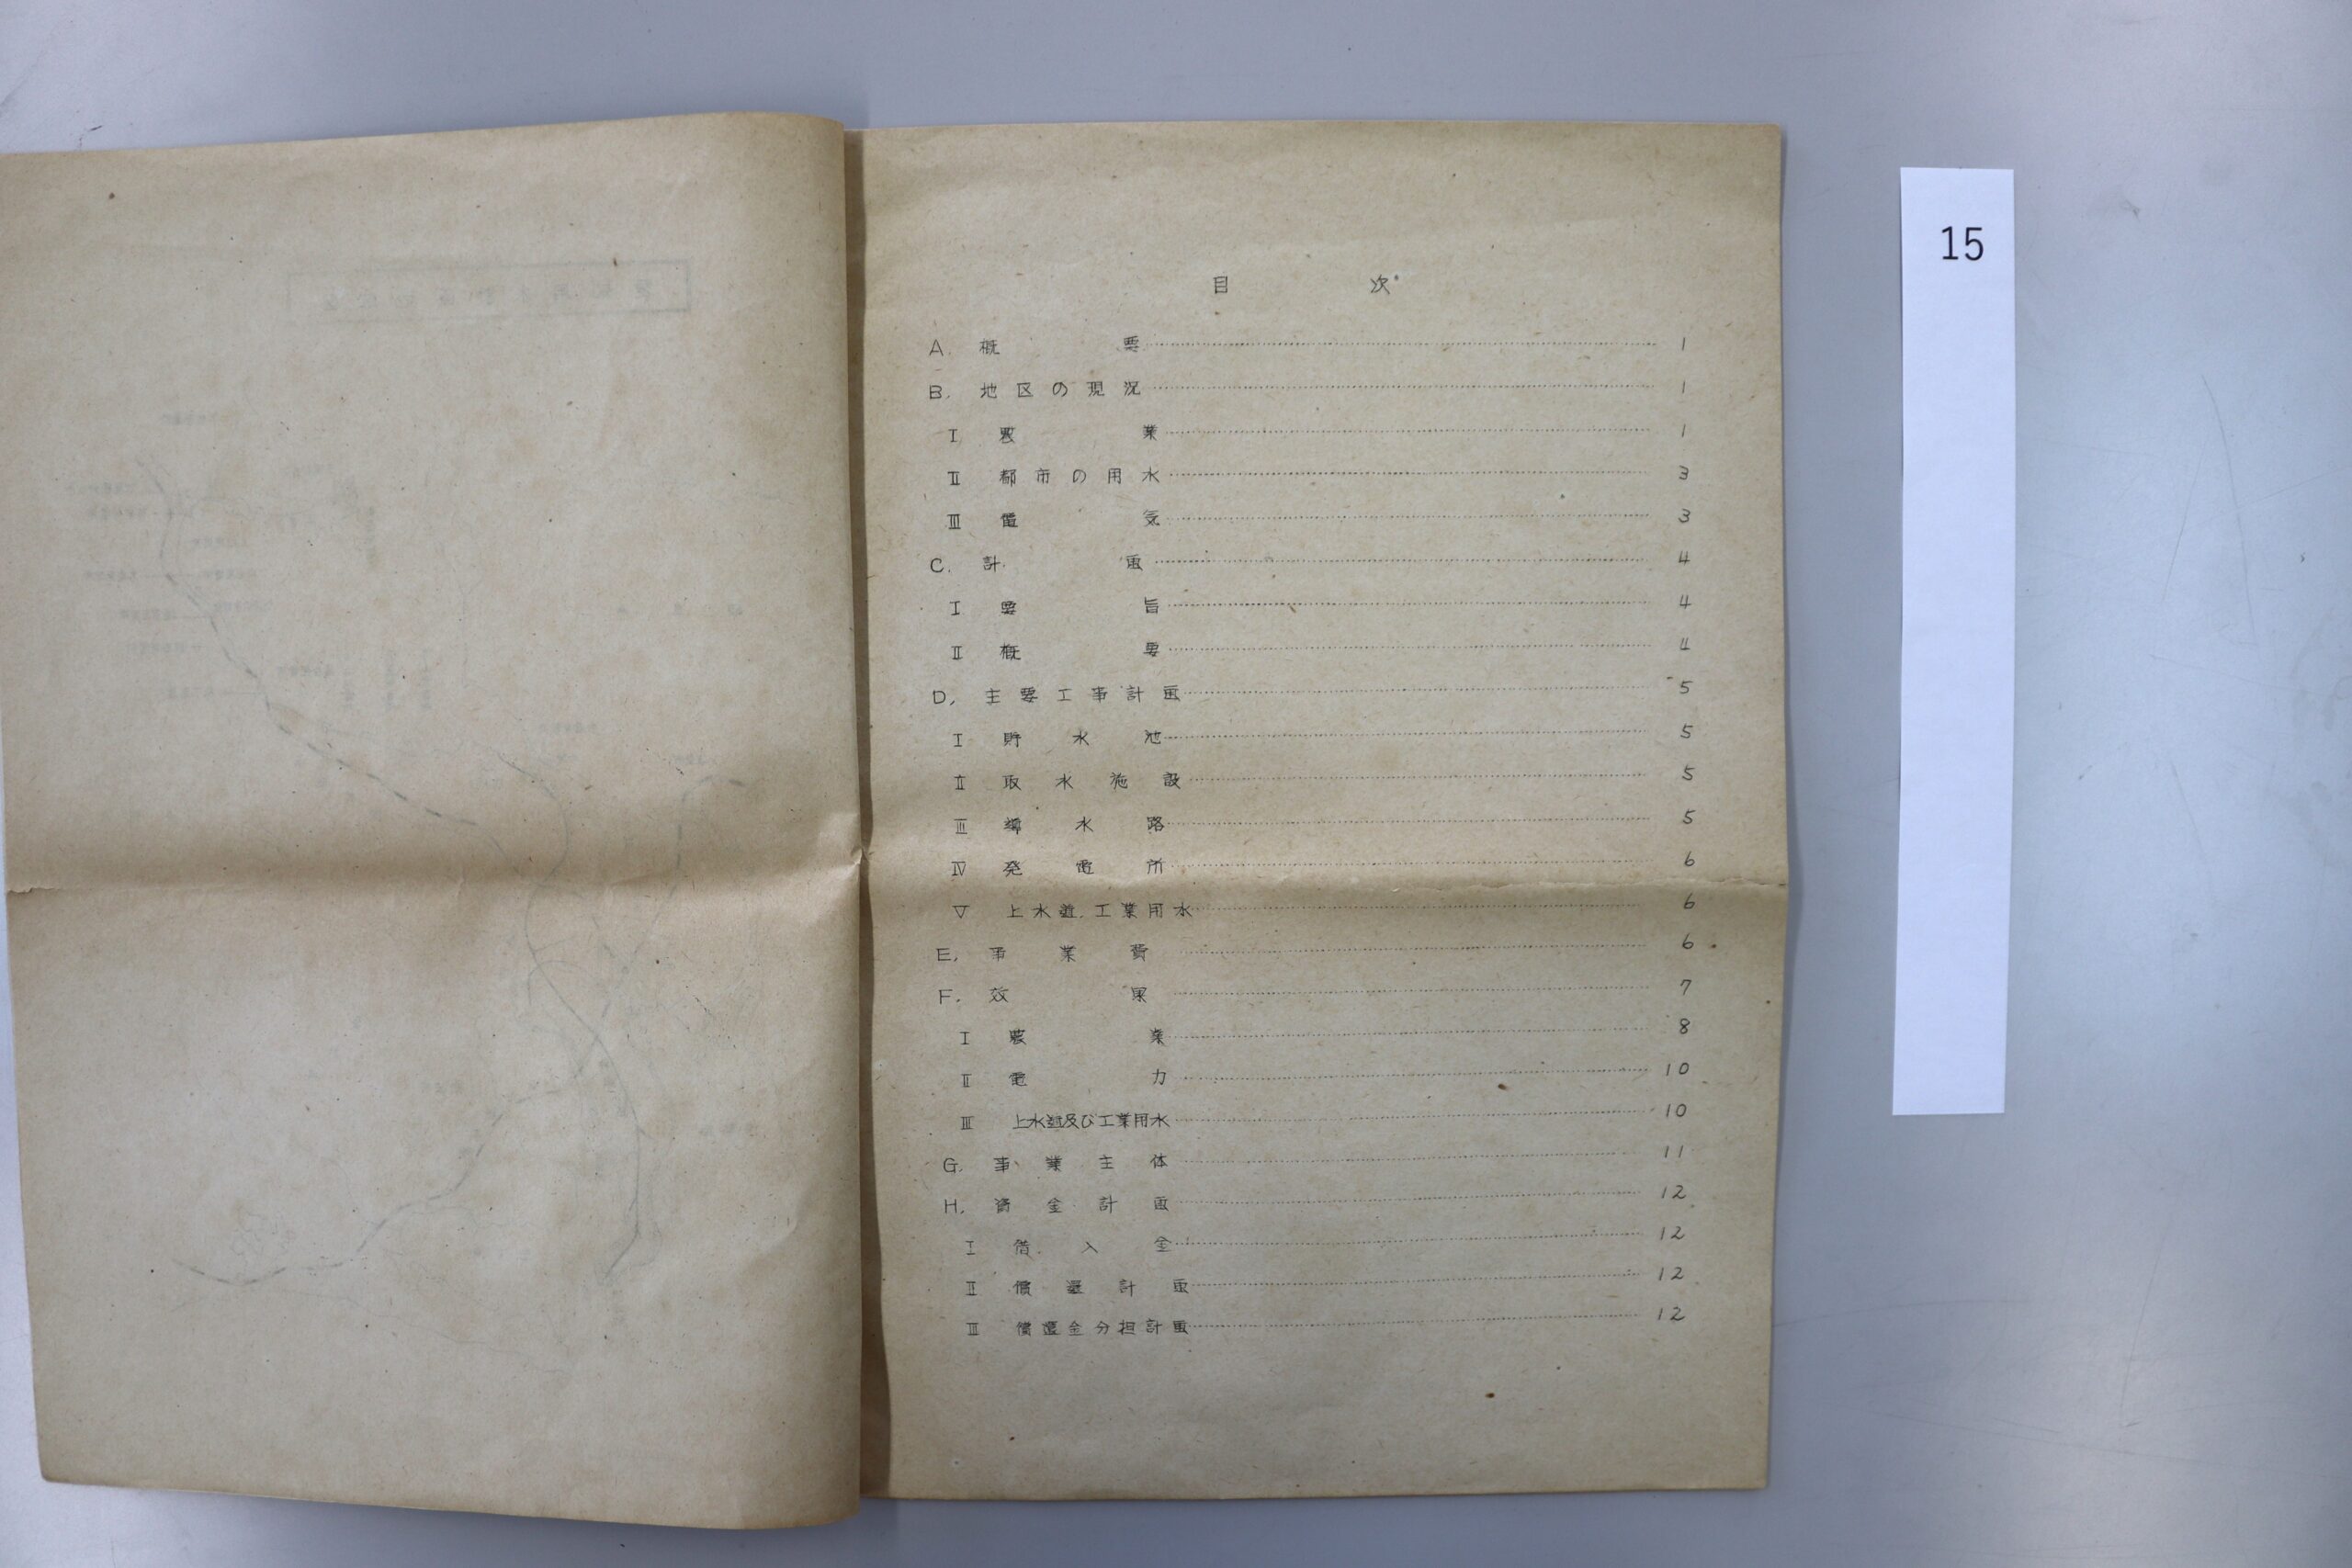 目次
A. 概要 1
B. 地区の現況 1
I 農業 1
II 都市の用水 3
III 電気 3
C. 計画 4
I 要旨 4
II 概要 4
D. 主要工事計画 5
I 貯水池 5
II 取水施設 5
III 導水路 5
IV 発電所 6
V 上水道、工業用水 6
E. 事業費 6
F. 效果 7
I 農業 8
II 電力 10
III 上水道及び工業用水 10
G. 事業主体 11
H. 資金計画 12
I 借入金 12
II 償還計画 12
III 償還金分担計画 12
15